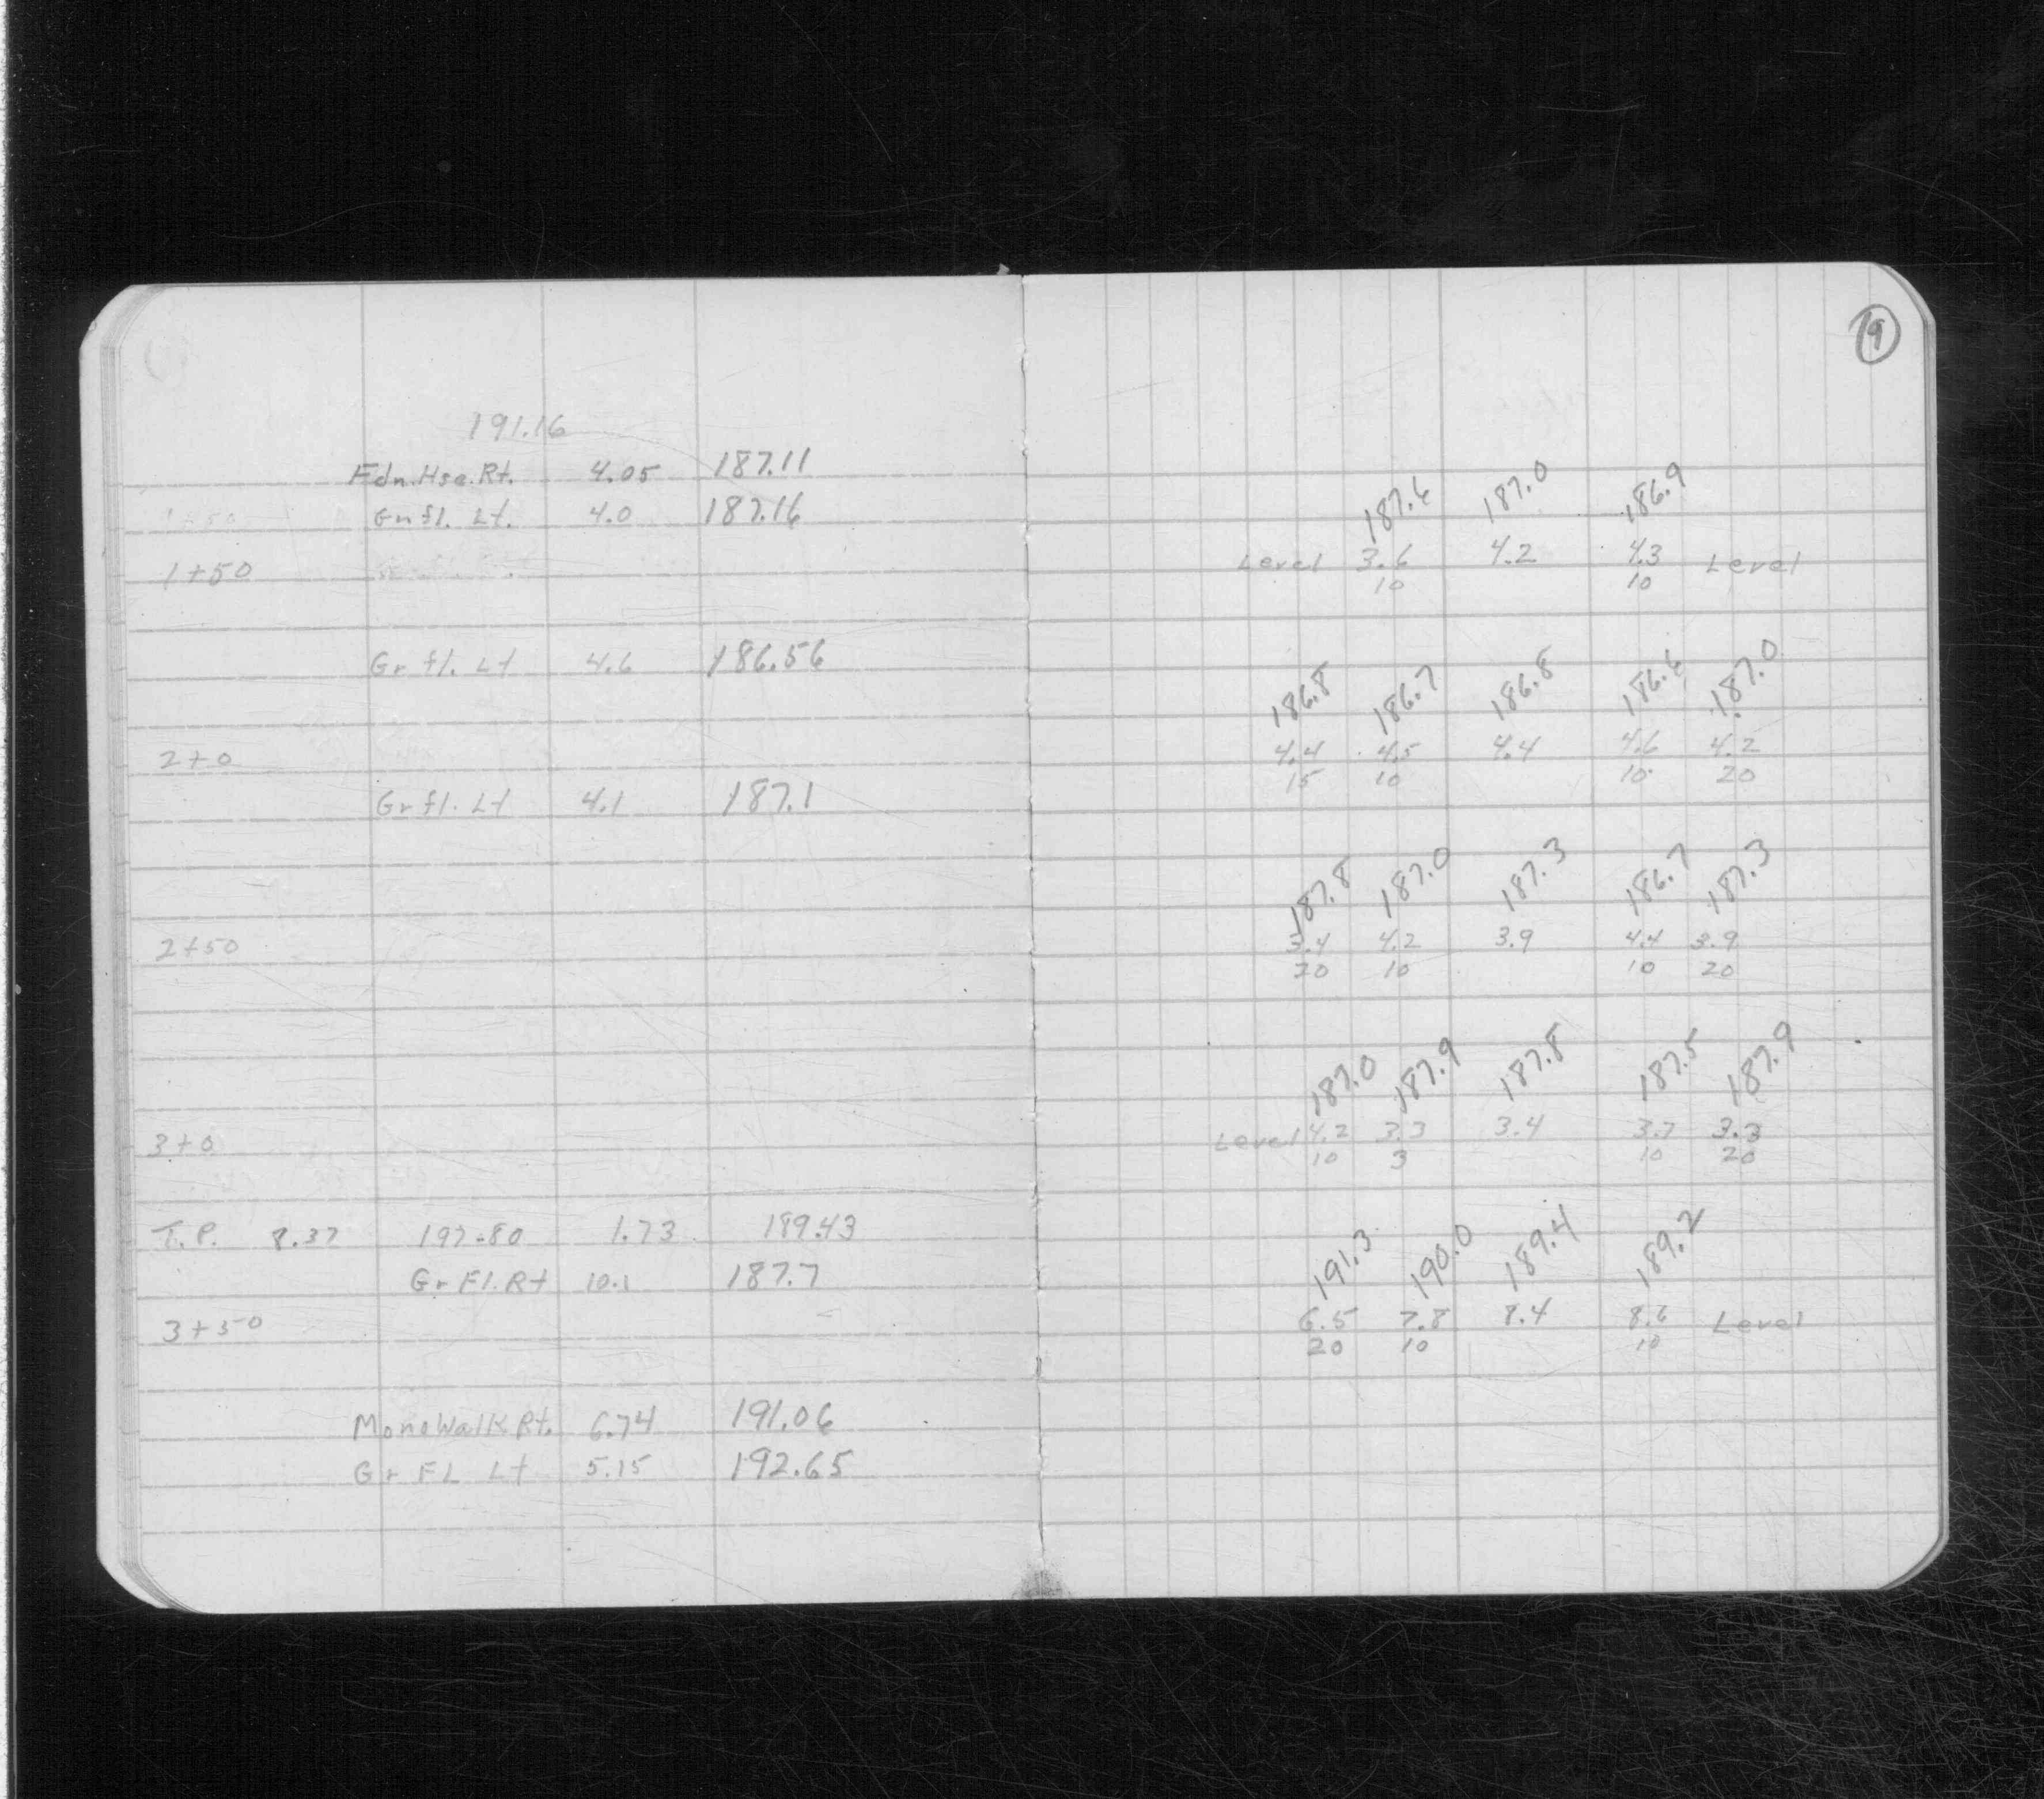 9
191.16
Fdn. Hse. Rt. 4.05 187.11
Gr fl. Lt. 4.0 187.16
187.6 187.0 186.9
1+50 Level 3.6 4.2 4.3 Level
10 10
Gr fl. Lt 4.6 186.56
186.8 186.7 186.8 186.6 187.0
2+0 4.4 4.5 4.4 4.6 4.2
15 10 10 20
Gr fl. Lt 4.1 187.1
187.8 187.0 187.3 186.7 187.3
2+50 3.4 4.2 3.9 4.4 3.9
20 10 10 20
187.0 187.9 187.8 187.5 187.9
3+0 Level 4.2 3.3 3.4 3.7 3.3
10 3 10 20
T.P. 8.37 197.80 1.73 189.43
Gr Fl. Rt 10.1 187.7
191.3 190.0 189.4 189.2
3+50 6.5 7.8 8.4 8.6 Level
20 10 10
Mono Walk Rt. 6.74 191.06
Gr FL Lt 5.15 192.65